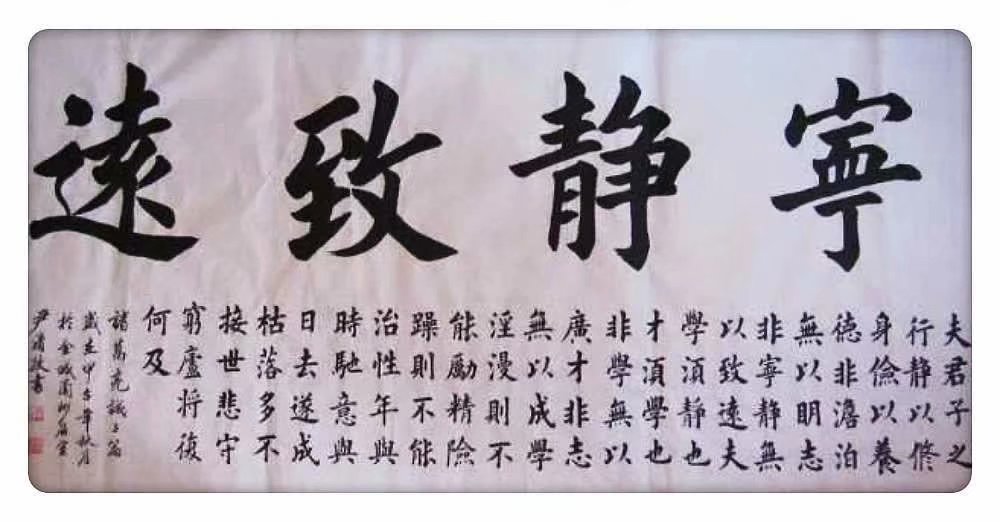 寧静致遠
夫君子之
行静以修
身儉以養
德非澹泊
無以明志
非寧静無
以致遠夫
學須静也
才須學也
非學無以
廣才非志
無以成學
淫漫則不
能勵精險
躁則不能
治性年與
時馳意與
日去遂成
枯落多不
接世悲守
窮廬将復
何及
諸葛亮誡子篇
歲在甲午年秋月
於金城蘭州
尹 書